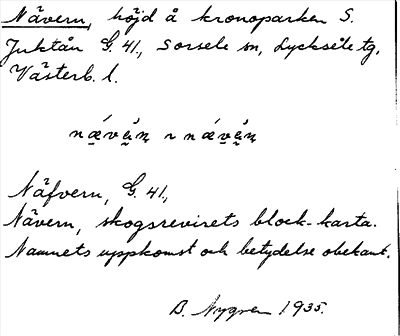 Nävern, höjd å kronoparken S.
Juktån G. 41., Sorsele sn, Lycksele tg,
Västerb. l.
Näfvern, G. 41.,
Nävern, skogsrevirets block-karta.
Namnets uppkomst och betydelse obekant.
B. Nygren 1935.